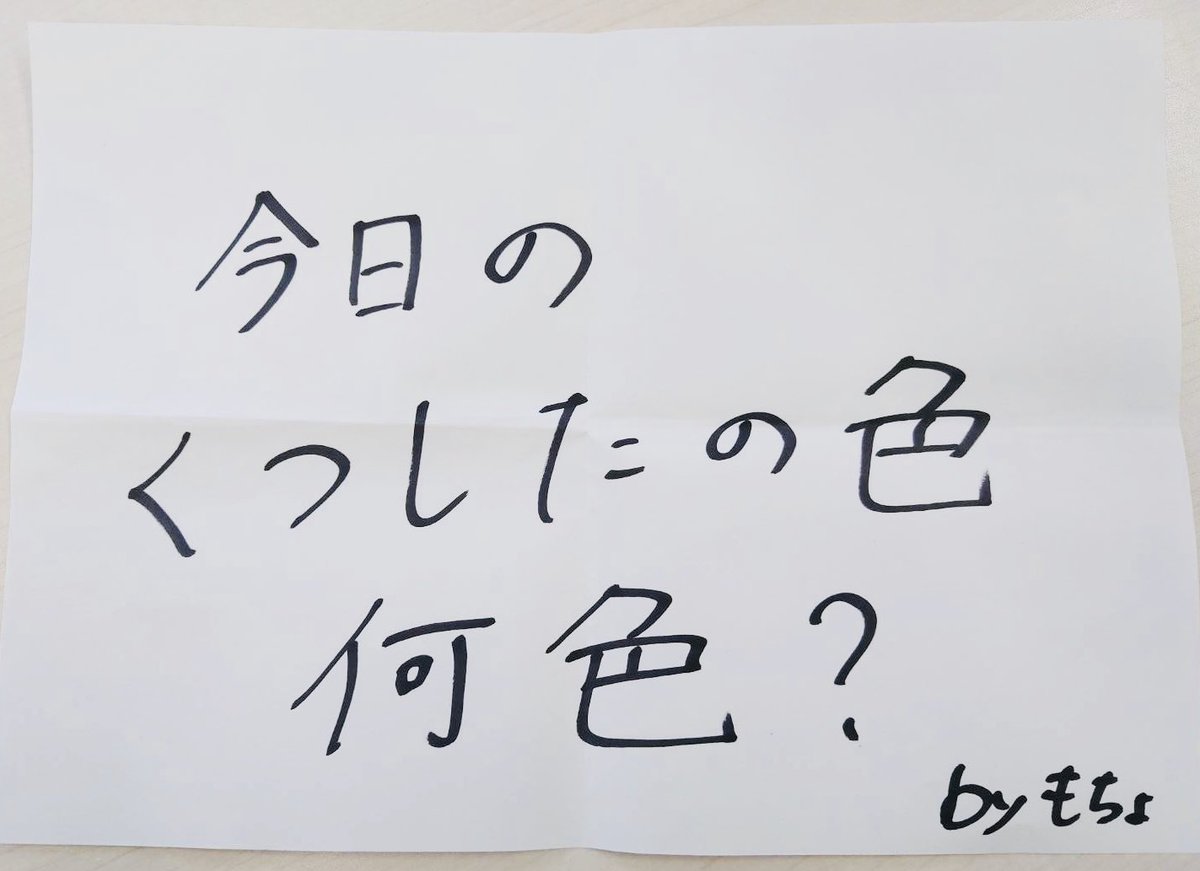 今日の
くつしたの色
何色?
by もちょ